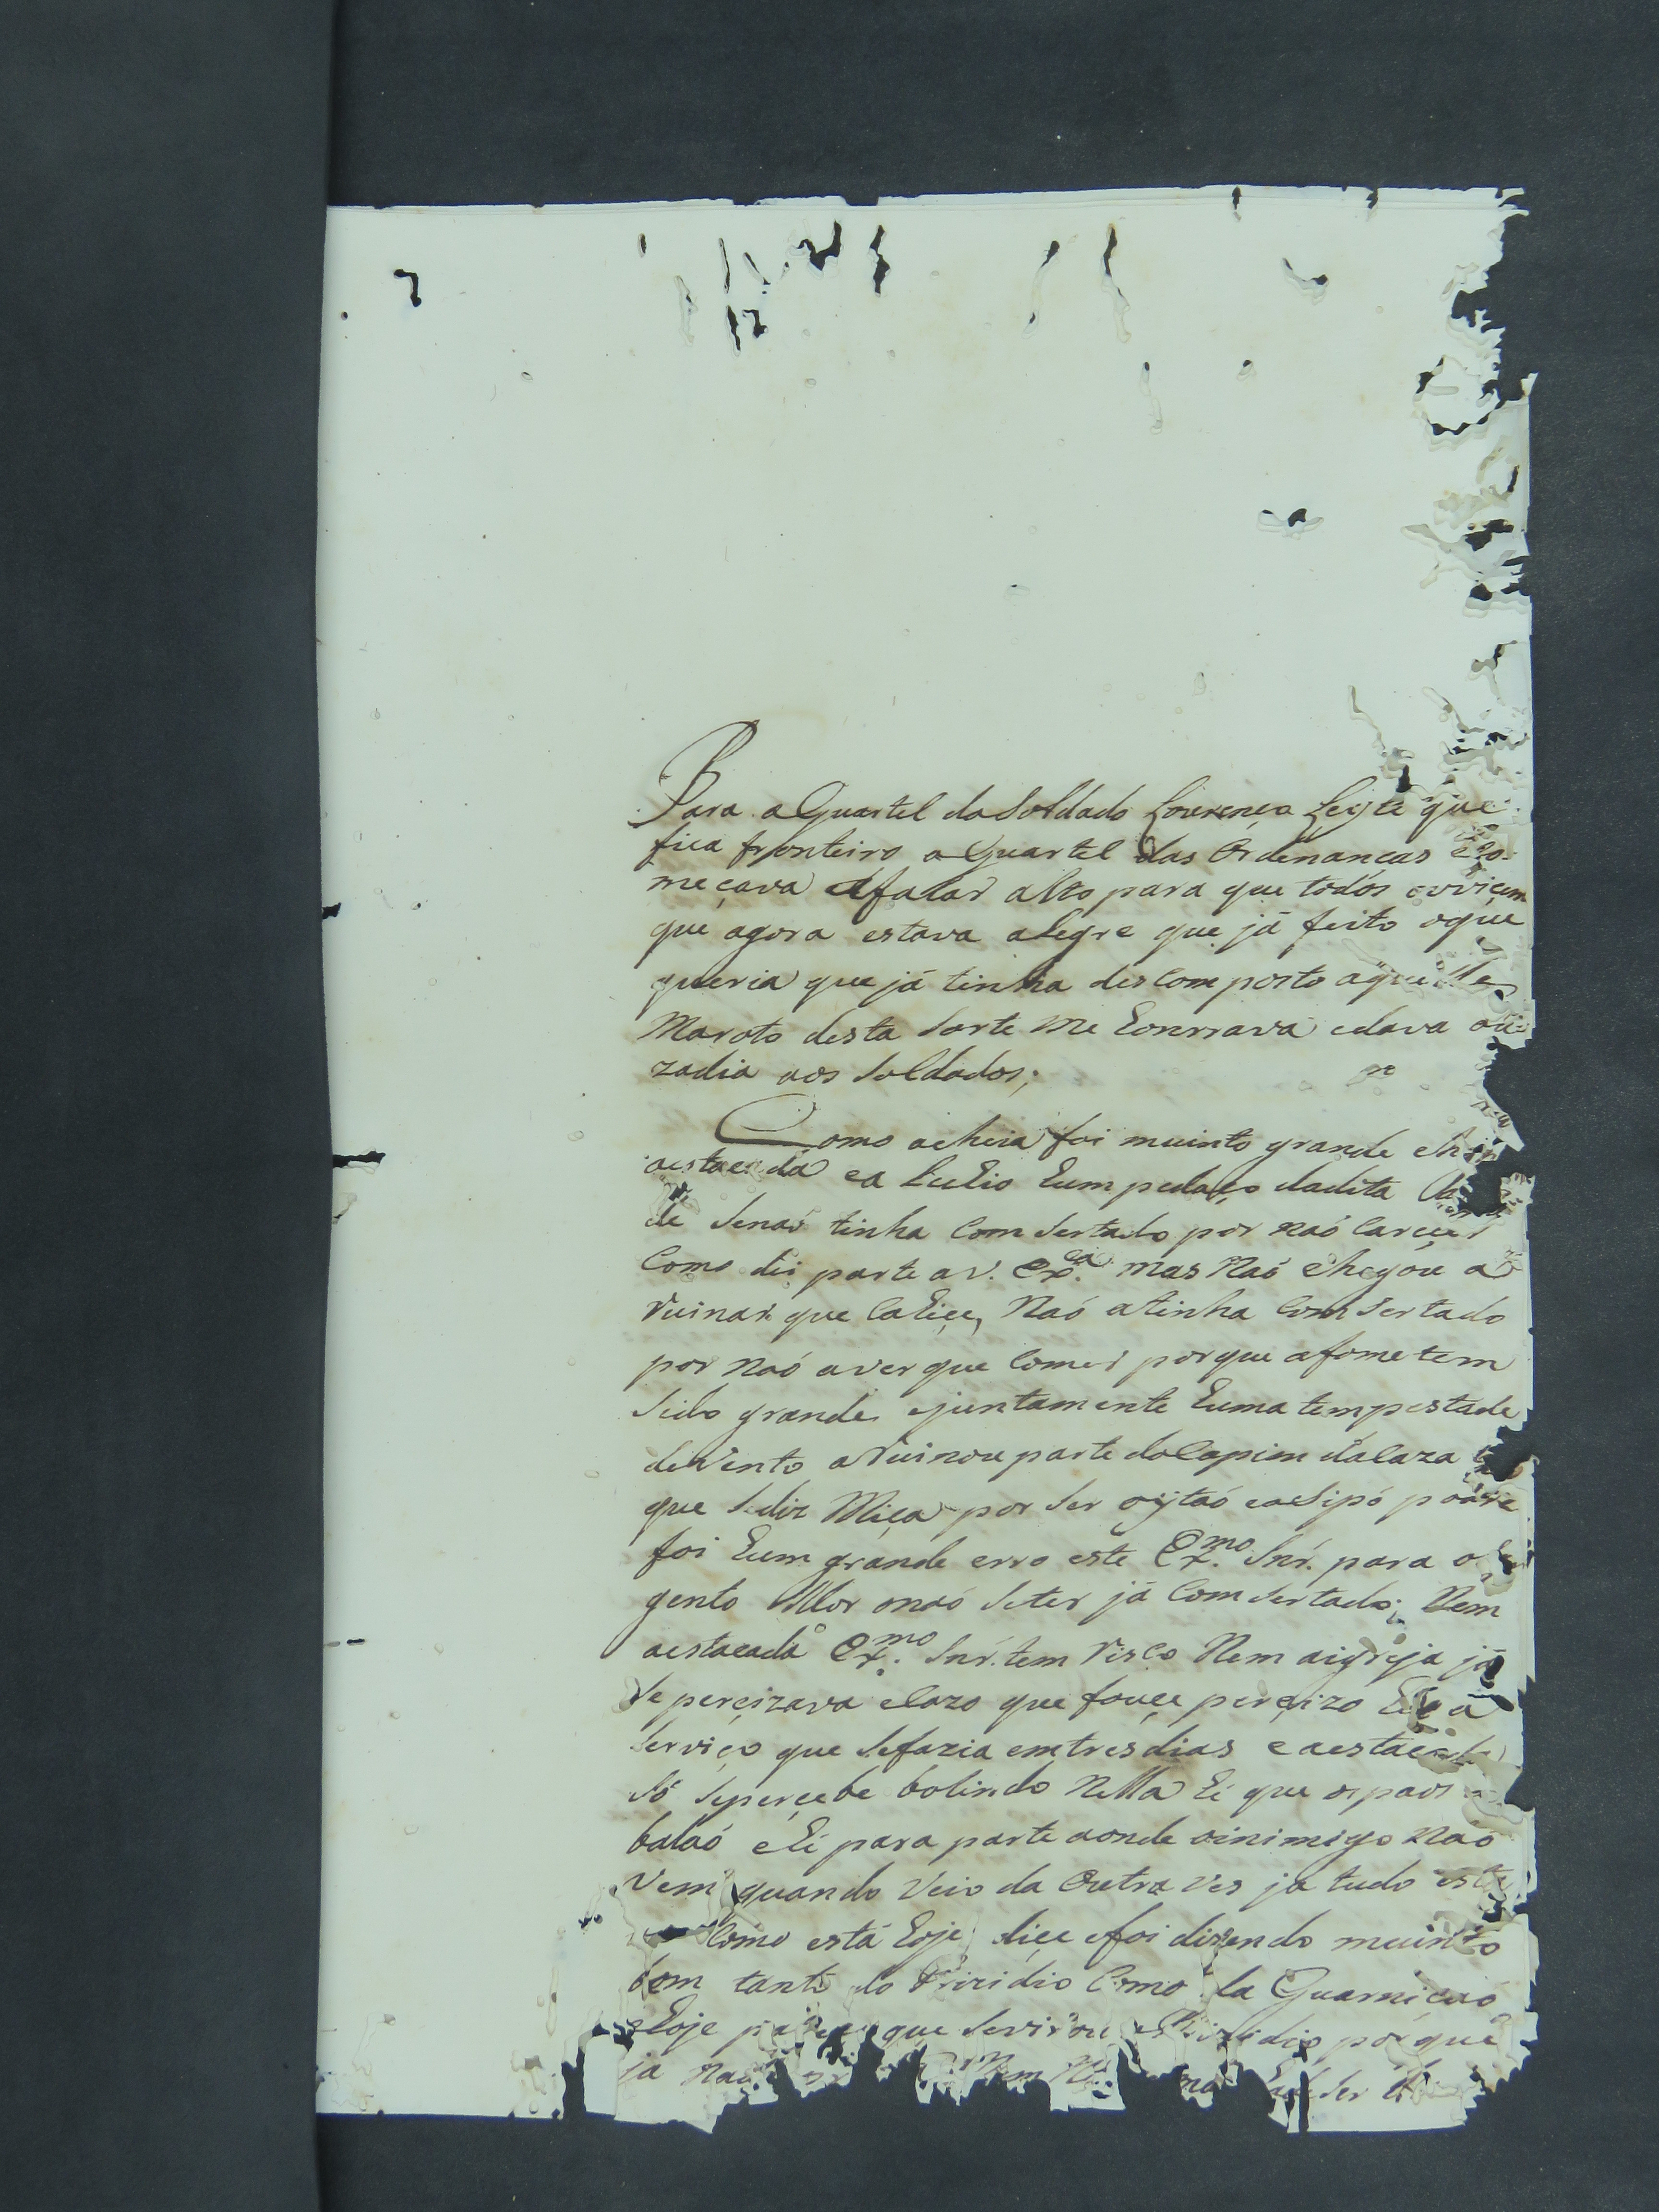 Para o Quartel do Soldado Lourenço Leyte que
fica fronteiro o Quartel das Ordenancas eco-
meçava afalar alto para que todos ovviçem
que agora estava alegre que já feito oque
queria que já tinha descomposto aquelle
Maroto desta sorte me honrrava edava ou-
zadia aos Soldados;
Como acheia foi muinto grande
aestacada ea hum pedaço dadita
de Senaó tinha Comsertado por naó
Como dei parte a V. Ex.ca mas Naó chegou a
Ruinar que Cahiçe, Naó atinha Comsertado
por Naó aver que Comer porque afome tem
Sido grande ejuntamente huma tempestade
deVento aRuinou parte doCapim daCaza
que Sediz Miça por Ser oytaó
foi hum grande erro este Ex.mo Snr. para o
gento Mor onaó Seter já Comsertado; Nem
aestacada Ex.mo Snr. tem Risco Nem aigreja já
Se perçizava eCazo que fouçe perçizo
Serviço que Sefazia emtresdias eaestacada
Só Seperçebe bolindo Nella hé que ospaos
balaó ehé para parte aonde oinimigo Naó
Vem quando Veio da Outra Ves ja tudo
Como está hoje diçe efoi dizendo muinto
bem tanto do Prizidio Como da Guarniçaó
ehoje que Sevirou porque
ja Naó Nem Ser